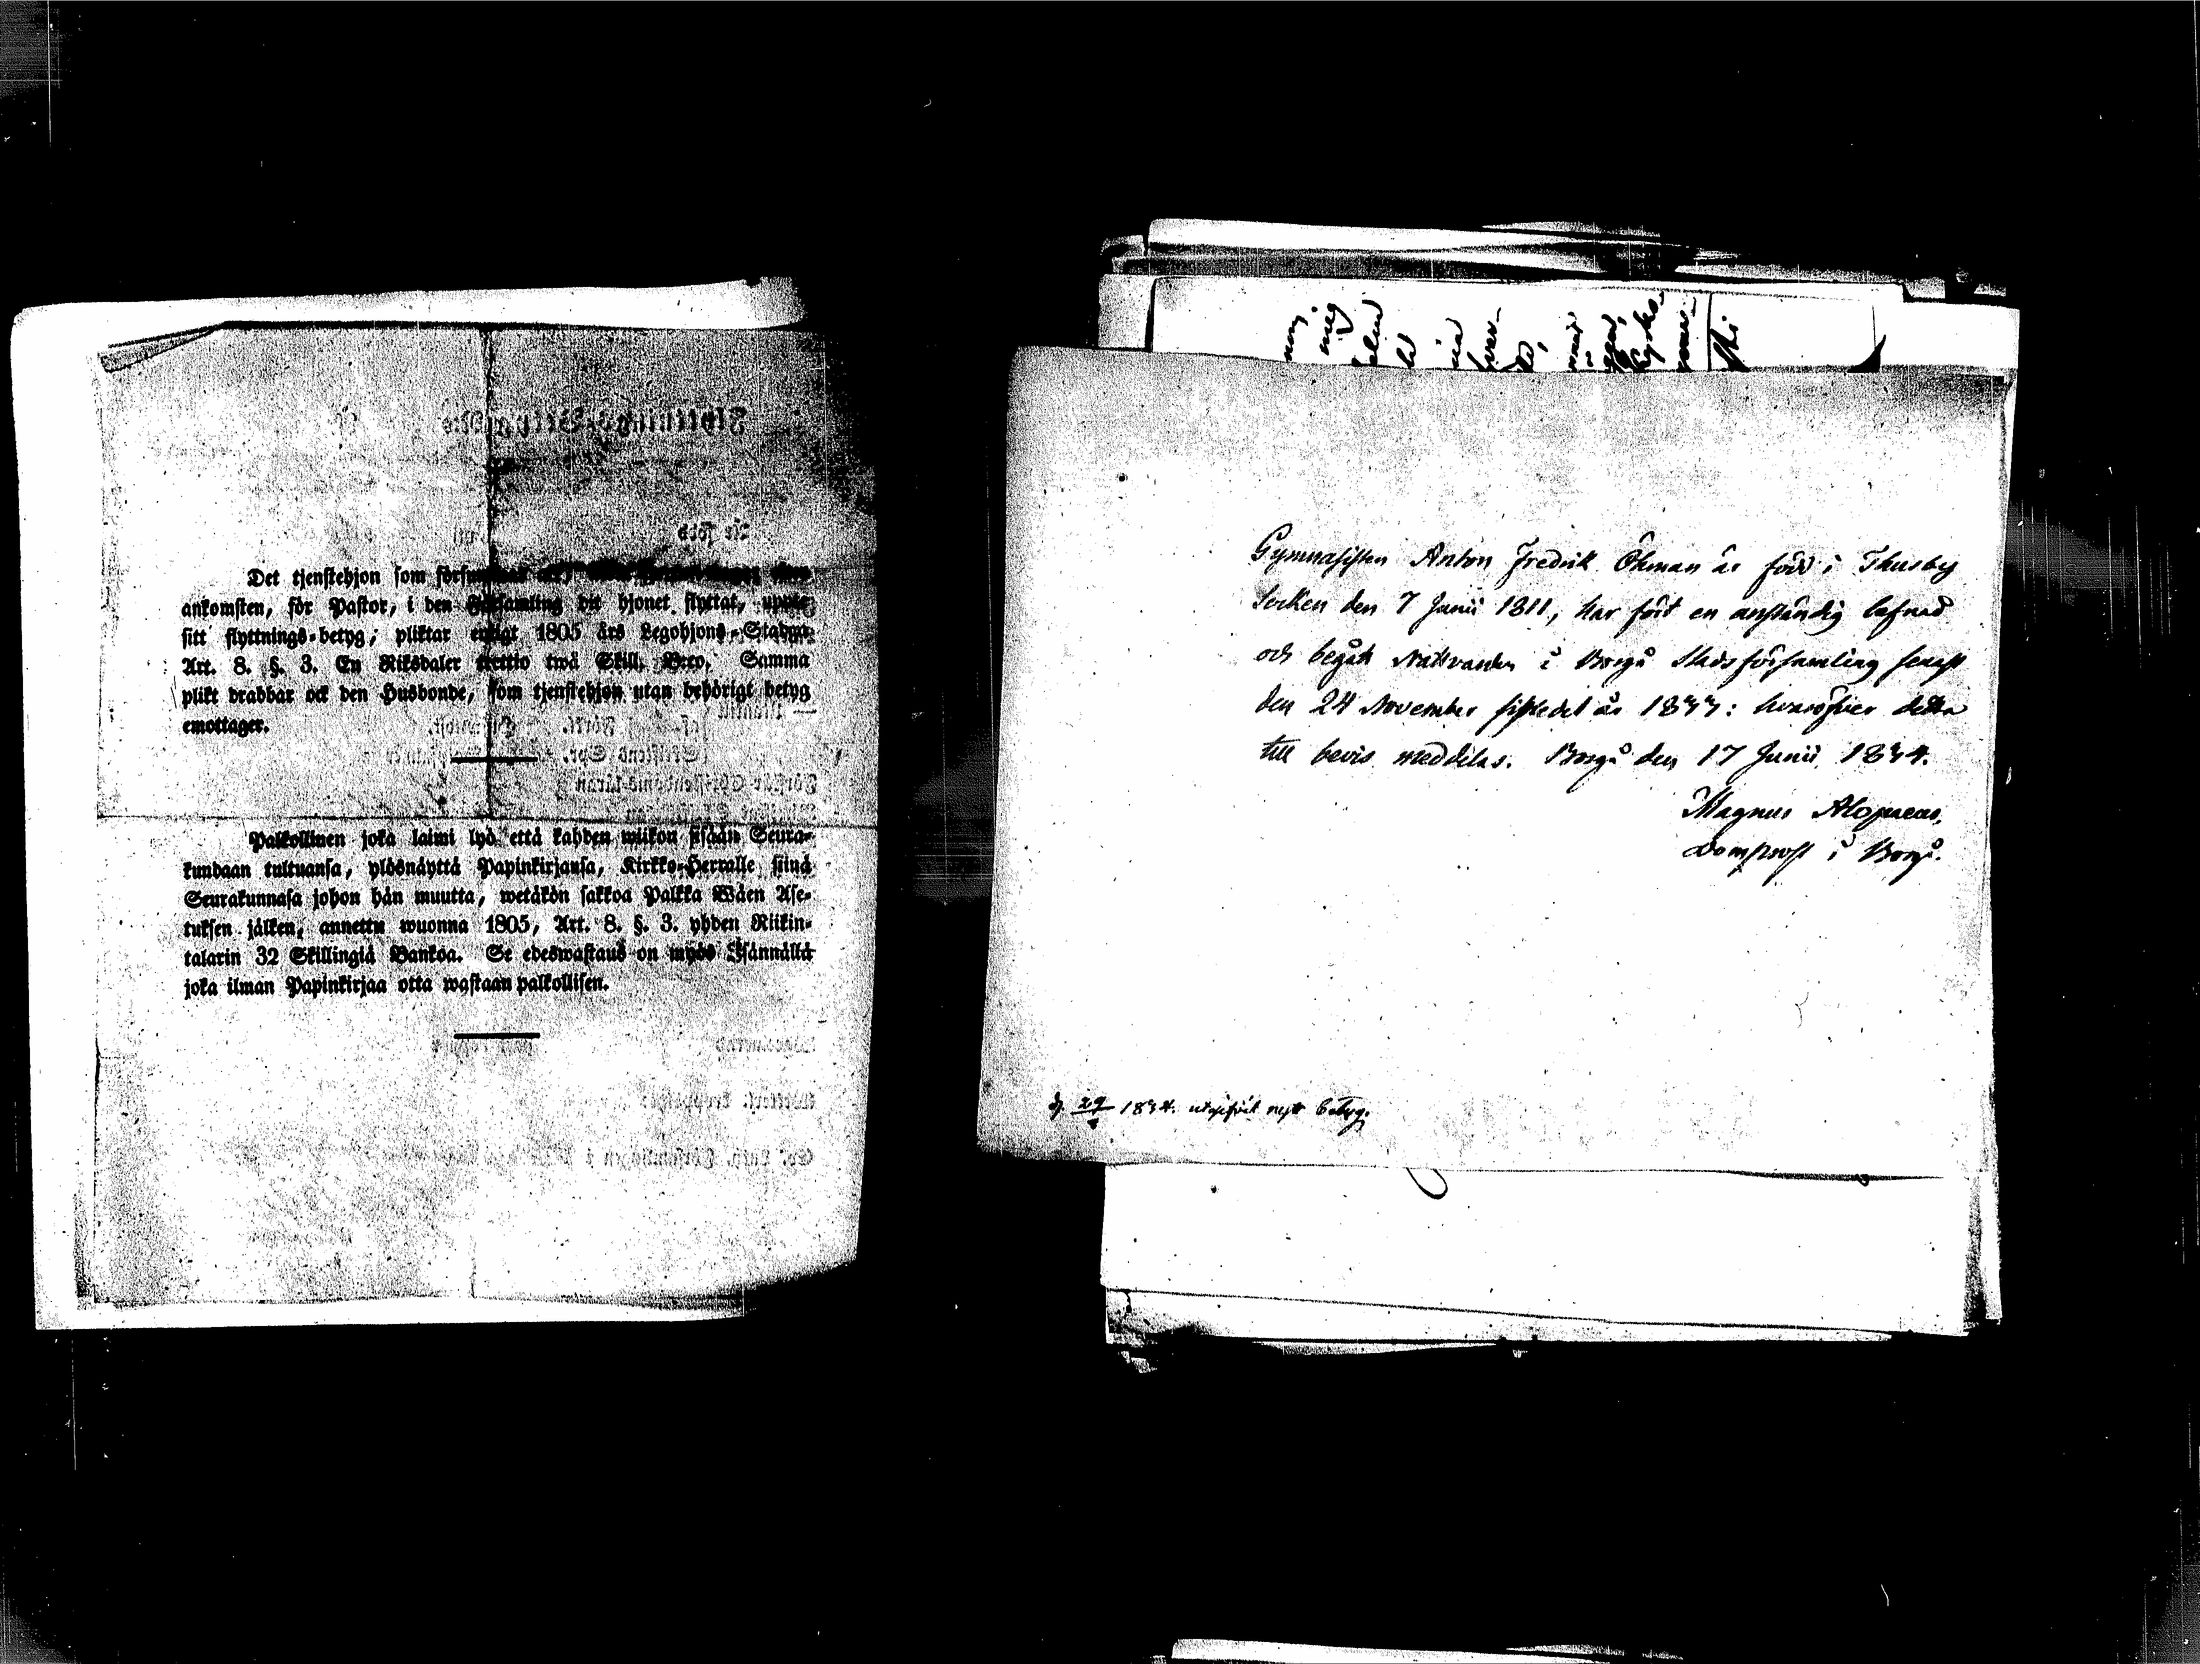 Det tjenstehjon som
ankomsten, för Pastor, i den Församling dit hjonet flyttat, uppte
sitt flyttnings-betyg, pliktar enligt 1805 års Legohjons-Stadga
Art. 8. §. 3. En Riksdaler trettio twå Skill. Bco. Samma
plikt drabbar ock den Husbonde, som tjenstehjon utan behörigt betyg
emottager.
Palkollinen joka laimi lyö että kahden wiikon sisään Seura-
kundaan tultuansa, ylösnäyttä Papinkirjansa, Kirkko-Herralle siinä
Seurakunnasa johon hän muutta, wetäkön sakkoa Palkka Wäen Ase-
tuksen jälken, annettu wuonna 1805, Art. 8. §. 3. yhden Riikin-
talarin 32 Skillingiä Bankoa. Se edeswastaus on myös Isännällä
joka ilman Papinkirjaa otta wastaan palkollisen.
Gymnasisten Anton Fredrik Öhman är född i Thusby
Socken den 7 Junii 1811, har fört en anständig lefnad
och begått Nattvarden i Borgå Stads församling senast
den 24 November sistledet år 1833: hvaröfver detta
till bevis meddelas. Borgå den 17 Junii 1834.
Magnus Alopaeus,
Domprost i Borgå.
29 1834. utgifvit nytt betyg.